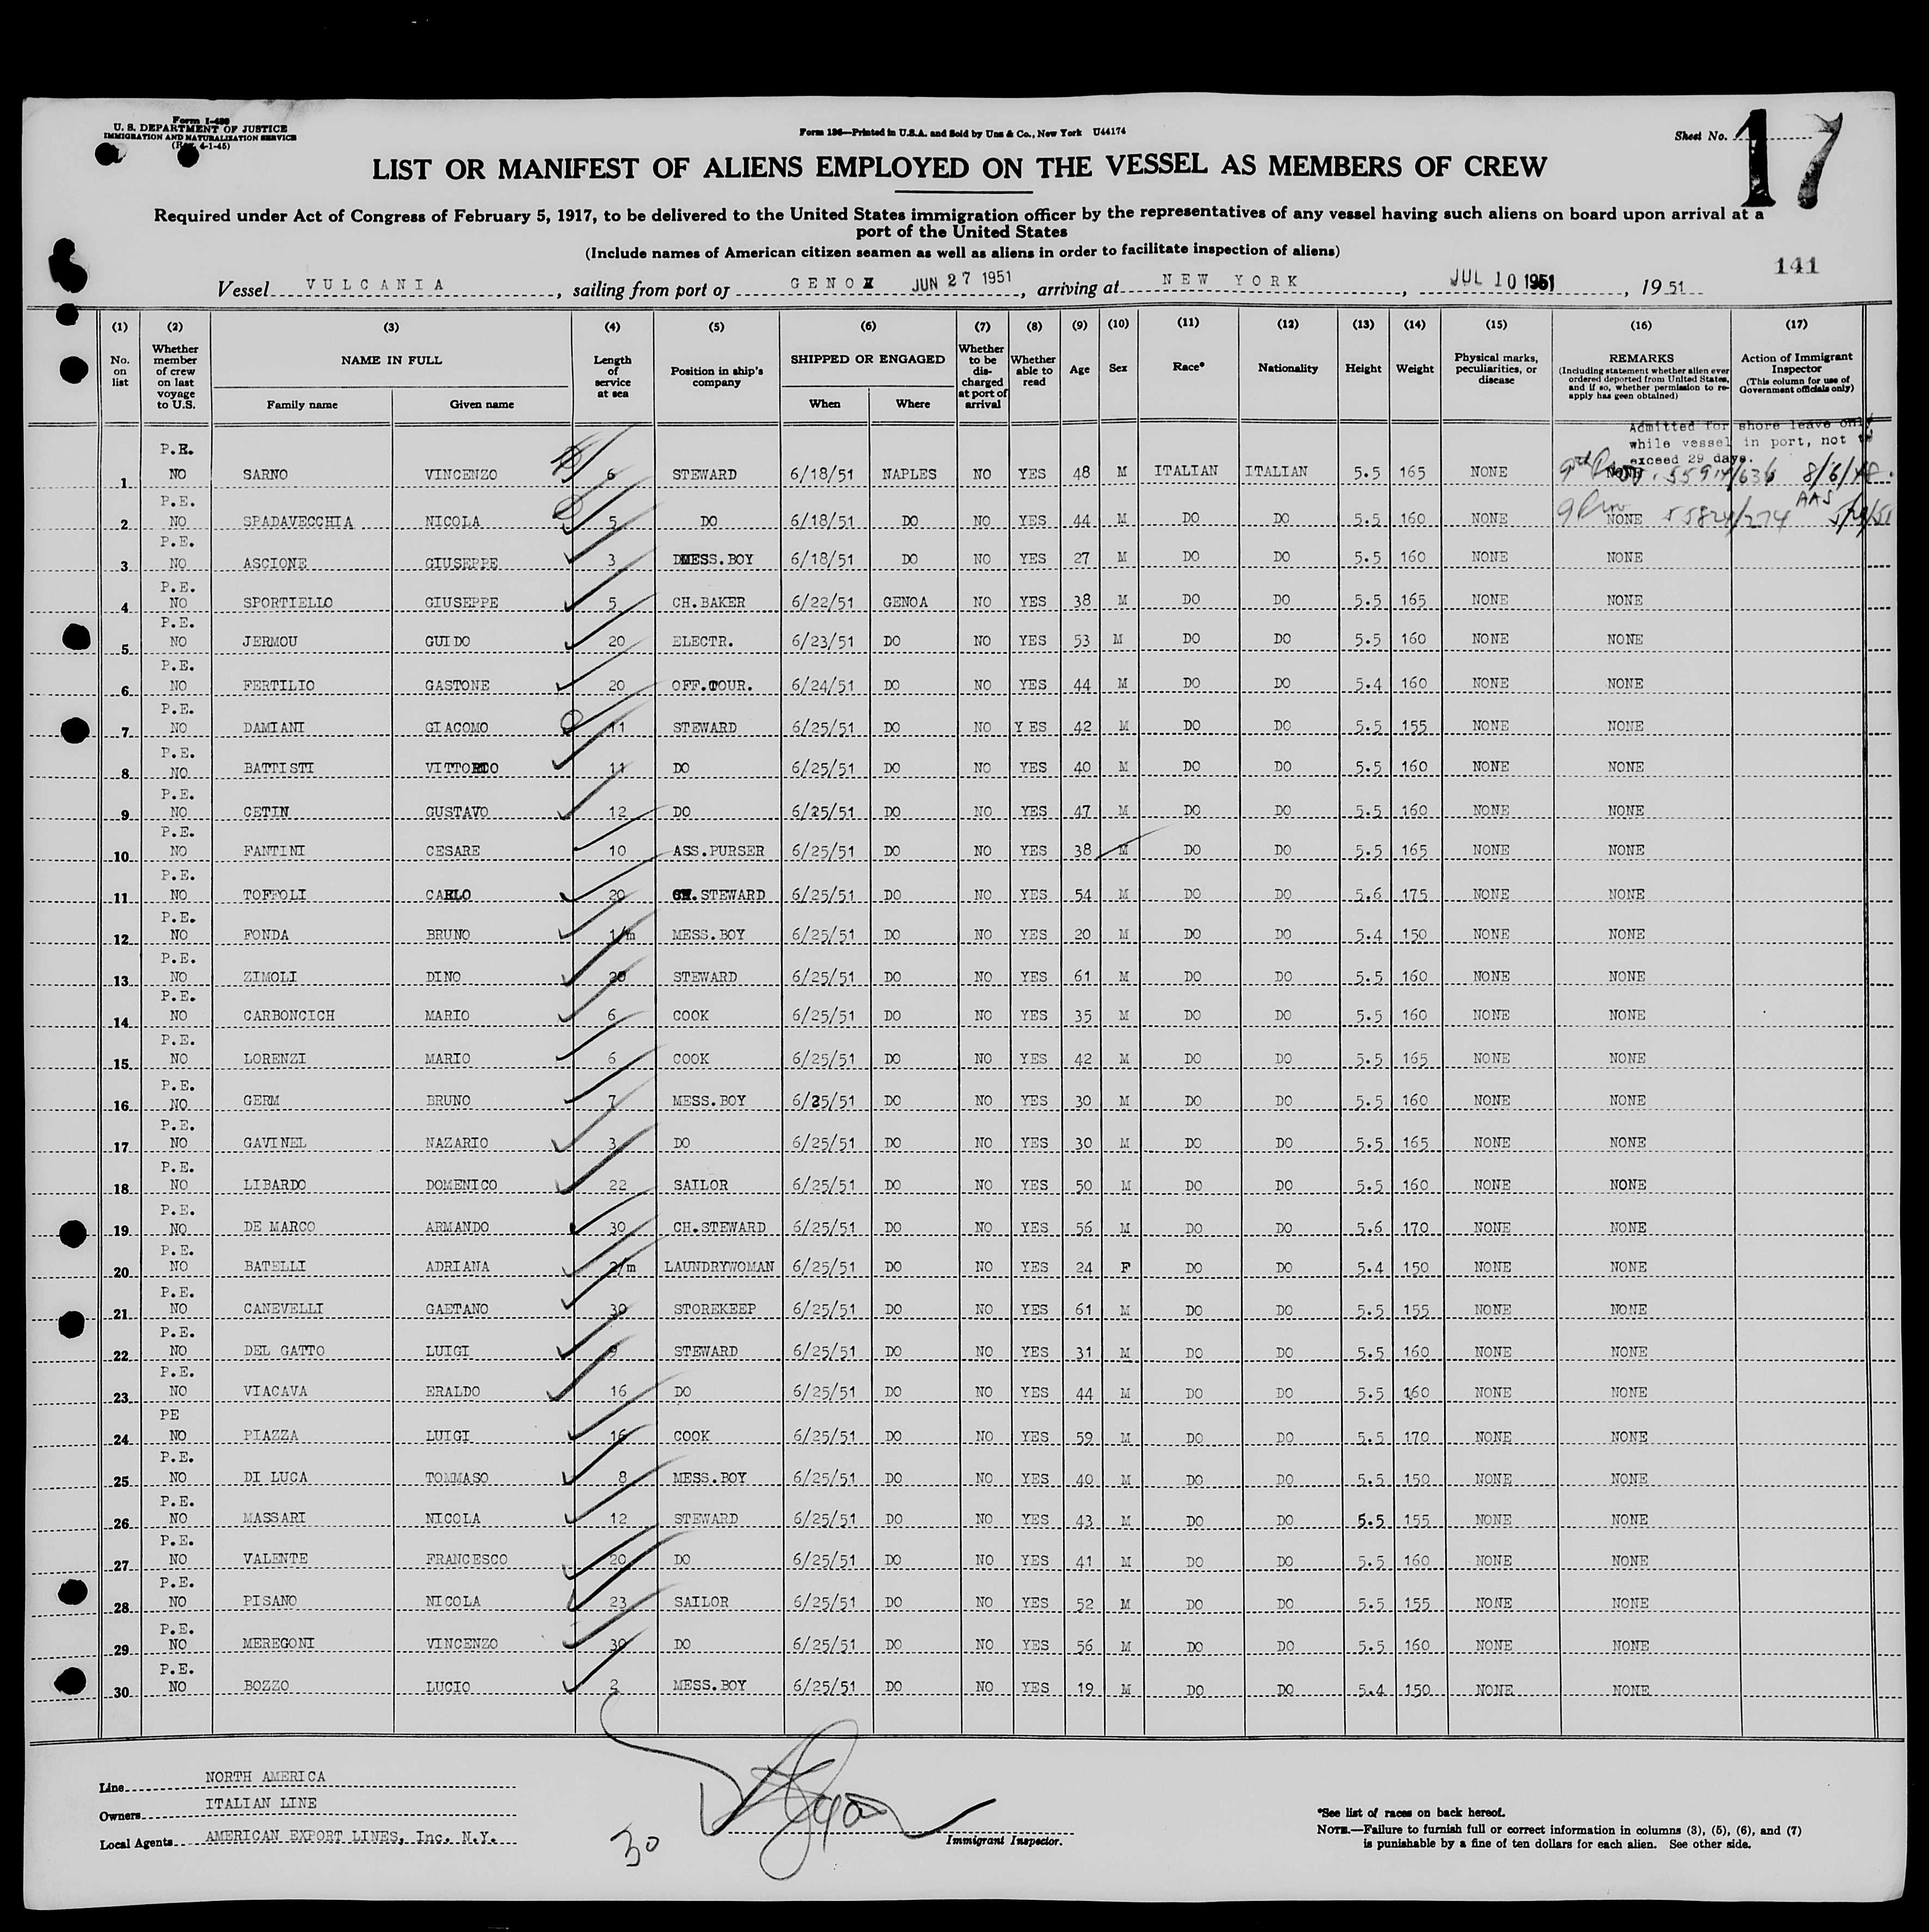 Form I-489
U. S. DEPARTMENT OF JUSTICE
IMMIGRATION AND NATURALIZATION SERVICE
(Rev. 4-1-45)
Form 136—Printed in U.S.A. and Sold by Unz & Co., New York U44174
Sheet No. 17
LIST OR MANIFEST OF ALIENS EMPLOYED ON THE VESSEL AS MEMBERS OF CREW
Required under Act of Congress of February 5, 1917, to be delivered to the United States immigration officer by the representatives of any vessel having such aliens on board upon arrival at a
port of the United States
(Include names of American citizen seamen as well as aliens in order to facilitate inspection of aliens)
141
Vessel VULCANIA, sailing from port of GENOA JUN 27 1951, arriving at NEW YORK, JUL 10 1951, 19 51
(1) No. on list
(2) Whether member of crew on last voyage to U.S.
(3) NAME IN FULL Family name Given name
(4) Length of service at sea
(5) Position in ship's company
(6) SHIPPED OR ENGAGED When Where
(7) Whether to be discharged at port of arrival
(8) Whether able to read
(9) Age
(10) Sex
(11) Race*
(12) Nationality
(13) Height
(14) Weight
(15) Physical marks, peculiarities, or disease
(16) REMARKS (Including statement whether alien ever ordered deported from United States, and if so, whether permission to re-apply has geen obtained)
(17) Action of Immigrant Inspector (This column for use of Government officials only)
Admitted for shore leave only
while vessel in port, not to
exceed 29 days.
1 P.E. NO SARNO VINCENZO 6 STEWARD 6/18/51 NAPLES NO YES 48 M ITALIAN ITALIAN 5.5 165 NONE NONE 9th Prov. 55914/636 8/6/48
2 P.E. NO SPADAVECCHIA NICOLA 5 DO 6/18/51 DO NO YES 44 M DO DO 5.5 160 NONE NONE 9 Prov 55824/274 AAS
3 P.E. NO ASCIONE GIUSEPPE 3 MESS.BOY 6/18/51 DO NO YES 27 M DO DO 5.5 160 NONE NONE
4 P.E. NO SPORTIELLO GIUSEPPE 5 CH.BAKER 6/22/51 GENOA NO YES 38 M DO DO 5.5 165 NONE NONE
5 P.E. NO JERMOU GUIDO 20 ELECTR. 6/23/51 DO NO YES 53 M DO DO 5.5 160 NONE NONE
6 P.E. NO FERTILIO GASTONE 20 OFF.TOUR. 6/24/51 DO NO YES 44 M DO DO 5.4 160 NONE NONE
7 P.E. NO DAMIANI GIACOMO 11 STEWARD 6/25/51 DO NO YES 42 M DO DO 5.5 155 NONE NONE
8 P.E. NO BATTISTI VITTORIO 11 DO 6/25/51 DO NO YES 40 M DO DO 5.5 160 NONE NONE
9 P.E. NO CETIN GUSTAVO 12 DO 6/25/51 DO NO YES 47 M DO DO 5.5 160 NONE NONE
10 P.E. NO FANTINI CESARE 10 ASS.PURSER 6/25/51 DO NO YES 38 M DO DO 5.5 165 NONE NONE
11 P.E. NO TOFFOLI CARLO 20 CH.STEWARD 6/25/51 DO NO YES 54 M DO DO 5.6 175 NONE NONE
12 P.E. NO FONDA BRUNO 1/m MESS.BOY 6/25/51 DO NO YES 20 M DO DO 5.4 150 NONE NONE
13 P.E. NO ZIMOLI DINO 20 STEWARD 6/25/51 DO NO YES 61 M DO DO 5.5 160 NONE NONE
14 P.E. NO CARBONCICH MARIO 6 COOK 6/25/51 DO NO YES 35 M DO DO 5.5 160 NONE NONE
15 P.E. NO LORENZI MARIO 6 COOK 6/25/51 DO NO YES 42 M DO DO 5.5 165 NONE NONE
16 P.E. NO GERM BRUNO 7 MESS.BOY 6/25/51 DO NO YES 30 M DO DO 5.5 160 NONE NONE
17 P.E. NO GAVINEL NAZARIO 3 DO 6/25/51 DO NO YES 30 M DO DO 5.5 165 NONE NONE
18 P.E. NO LIBARDO DOMENICO 22 SAILOR 6/25/51 DO NO YES 50 M DO DO 5.5 160 NONE NONE
19 P.E. NO DE MARCO ARMANDO 30 CH.STEWARD 6/25/51 DO NO YES 56 M DO DO 5.6 170 NONE NONE
20 P.E. NO BATELLI ADRIANA 2/m LAUNDRYWOMAN 6/25/51 DO NO YES 24 F DO DO 5.4 150 NONE NONE
21 P.E. NO CANEVELLI GAETANO 30 STOREKEEP 6/25/51 DO NO YES 61 M DO DO 5.5 155 NONE NONE
22 P.E. NO DEL GATTO LUIGI 9 STEWARD 6/25/51 DO NO YES 31 M DO DO 5.5 160 NONE NONE
23 P.E. NO VIACAVA ERALDO 16 DO 6/25/51 DO NO YES 44 M DO DO 5.5 160 NONE NONE
24 PE NO PIAZZA LUIGI 16 COOK 6/25/51 DO NO YES 59 M DO DO 5.5 170 NONE NONE
25 P.E. NO DI LUCA TOMMASO 8 MESS.BOY 6/25/51 DO NO YES 40 M DO DO 5.5 150 NONE NONE
26 P.E. NO MASSARI NICOLA 12 STEWARD 6/25/51 DO NO YES 43 M DO DO 5.5 155 NONE NONE
27 P.E. NO VALENTE FRANCESCO 20 DO 6/25/51 DO NO YES 41 M DO DO 5.5 160 NONE NONE
28 P.E. NO PISANO NICOLA 23 SAILOR 6/25/51 DO NO YES 52 M DO DO 5.5 155 NONE NONE
29 P.E. NO MEREGONI VINCENZO 30 DO 6/25/51 DO NO YES 56 M DO DO 5.5 160 NONE NONE
30 P.E. NO BOZZO LUCIO 2 MESS.BOY 6/25/51 DO NO YES 19 M DO DO 5.4 150 NONE NONE
Line NORTH AMERICA
Owners ITALIAN LINE
Local Agents AMERICAN EXPORT LINES, Inc. N.Y.
30
Immigrant Inspector.
*See list of races on back hereof.
NOTE.—Failure to furnish full or correct information in columns (3), (5), (6), and (7)
is punishable by a fine of ten dollars for each alien. See other side.